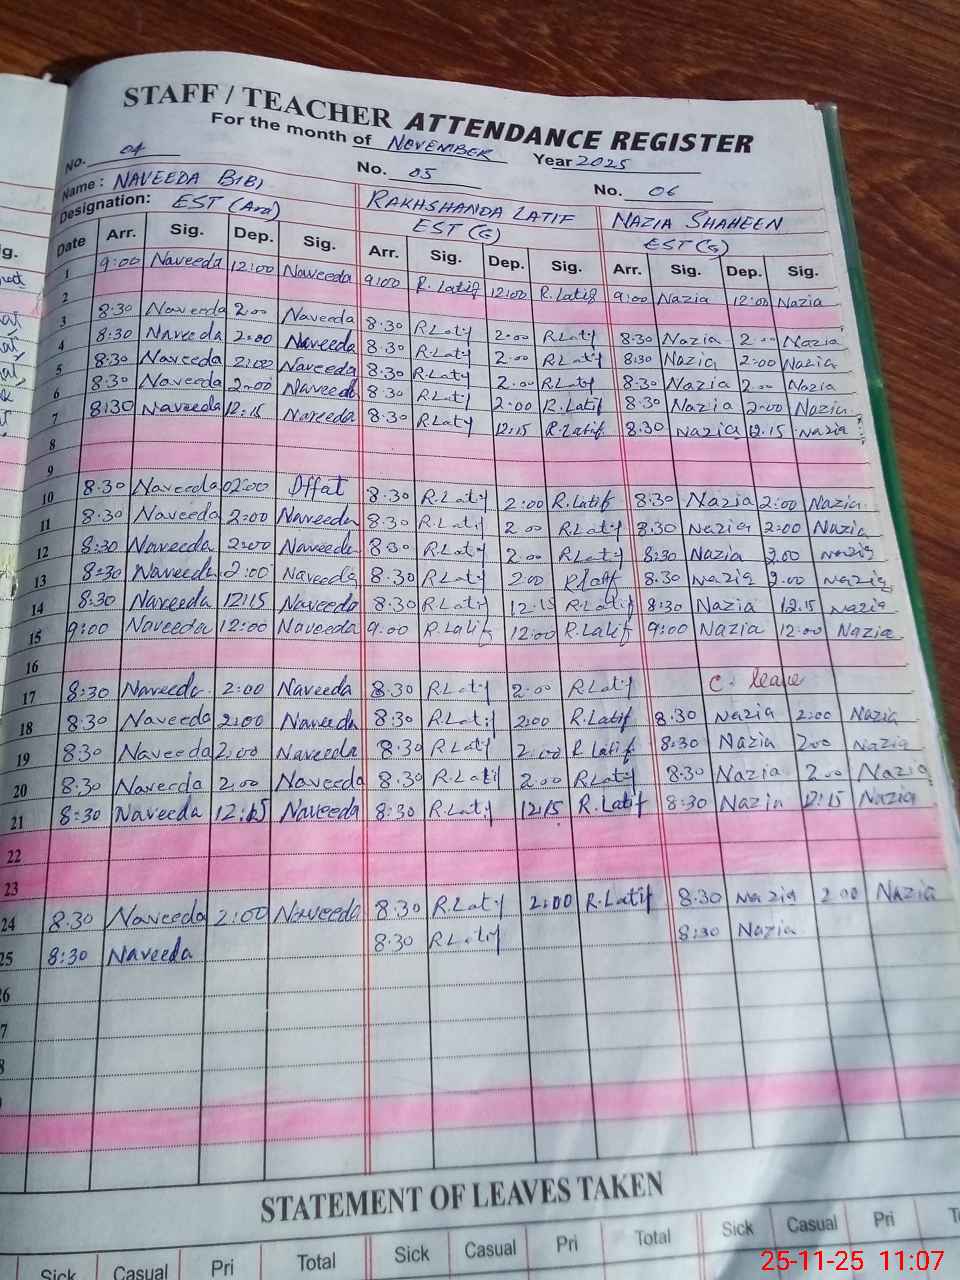 STAFF / TEACHER ATTENDANCE REGISTER
For the month of NOVEMBER Year 2025
No. 04 No. 05 No. 06
Name : NAVEEDA BIBI RAKHSHANDA LATIF NAZIA SHAHEEN
Designation: EST (Ara) EST (E) EST (S)
Date Arr. Sig. Dep. Sig. Arr. Sig. Dep. Sig. Arr. Sig. Dep. Sig.
1 9:00 Naveeda 12:00 Naveeda 9:00 R.Latif 12:00 R.Latif 9:00 Nazia 12:00 Nazia
2
3 8:30 Naveeda 2:00 Naveeda 8:30 R.Latif 2:00 R.Latif 8:30 Nazia 2:00 Nazia
4 8:30 Naveeda 2:00 Naveeda 8:30 R.Latif 2:00 R.Latif 8:30 Nazia 2:00 Nazia
5 8:30 Naveeda 2:00 Naveeda 8:30 R.Latif 2:00 R.Latif 8:30 Nazia 2:00 Nazia
6 8:30 Naveeda 2:00 Naveeda 8:30 R.Latif 2:00 R.Latif 8:30 Nazia 2:00 Nazia
7 8:30 Naveeda 12:15 Naveeda 8:30 R.Latif 12:15 R.Latif 8:30 Nazia 12.15 Nazia
8
9
10 8:30 Naveeda 02:00 8:30 R.Latif 2:00 R.Latif 8:30 Nazia 2:00 Nazia
11 8:30 Naveeda 2:00 Naveeda 8:30 R.Latif 2:00 R.Latif 8:30 Nazia 2:00 Nazia
12 8:30 Naveeda 2:00 Naveeda 8:30 R.Latif 2:00 R.Latif 8:30 Nazia 2.00 Nazia
13 8:30 Naveeda 2:00 Naveeda 8:30 R.Latif 2:00 R.Latif 8:30 Nazia 2:00 Nazia
14 8:30 Naveeda 12:15 Naveeda 8:30 R.Latif 12:15 R.Latif 8:30 Nazia 12.15 Nazia
15 9:00 Naveeda 12:00 Naveeda 9.00 R.Latif 12:00 R.Latif 9:00 Nazia 12:00 Nazia
16
17 8:30 Naveeda 2:00 Naveeda 8:30 R.Latif 2:00 R.Latif C. leave
18 8:30 Naveeda 2:00 Naveeda 8:30 R.Latif 2:00 R.Latif 8:30 Nazia 2:00 Nazia
19 8:30 Naveeda 2:00 Naveeda 8:30 R.Latif 2:00 R.Latif 8:30 Nazia 2:00 Nazia
20 8:30 Naveeda 2:00 Naveeda 8:30 R.Latif 2:00 R.Latif 8:30 Nazia 2:00 Nazia
21 8:30 Naveeda 12:15 Naveeda 8:30 R.Latif 12:15 R.Latif 8:30 Nazia 12:15 Nazia
22
23
24 8:30 Naveeda 2:00 Naveeda 8:30 R.Latif 2:00 R.Latif 8:30 Nazia 2:00 Nazia
25 8:30 Naveeda 8:30 R.Latif 8:30 Nazia
STATEMENT OF LEAVES TAKEN
Sick Casual Pri Total Sick Casual Pri Total Sick Casual Pri
25-11-25 11:07